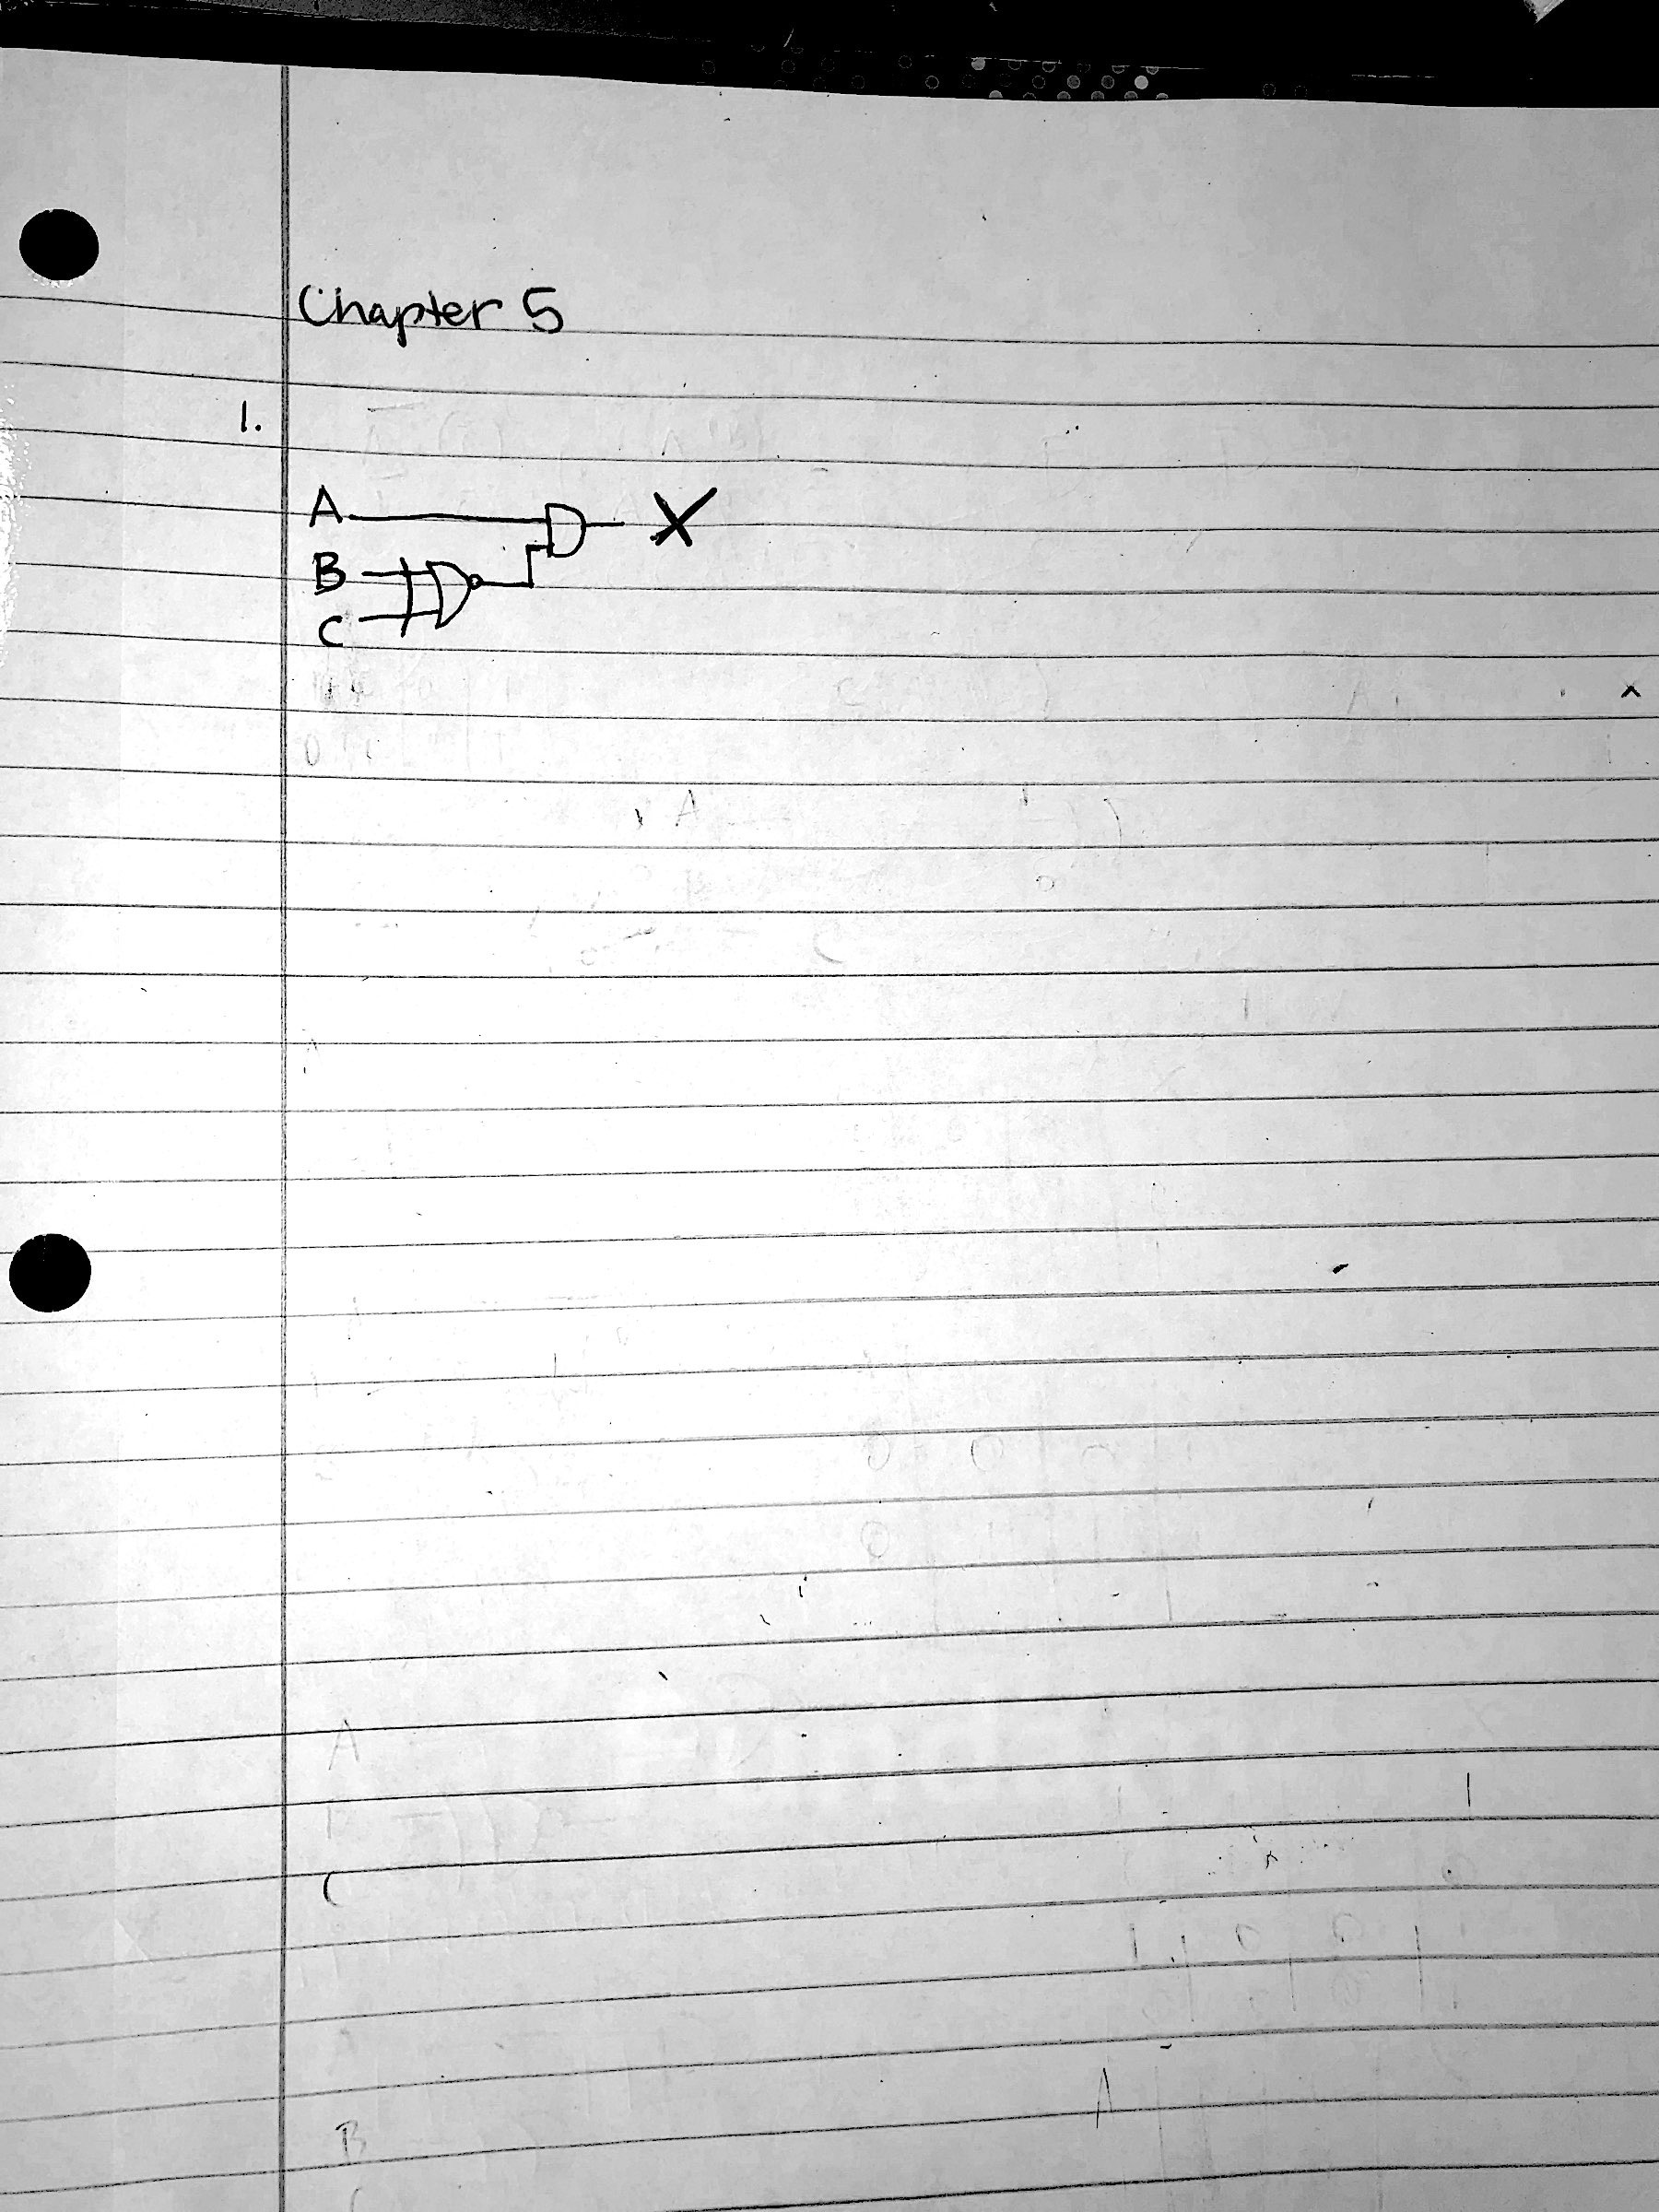 Chapter 5
1.
A X
B
C